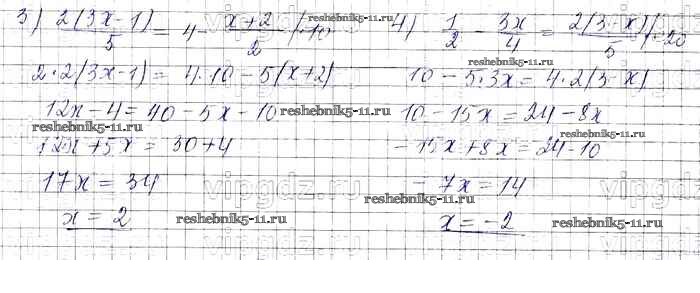 3) 2(3x-1)/5 = 4 - (x+2)/2 |·10
2·2(3x-1) = 4·10 - 5(x+2)
12x - 4 = 40 - 5x - 10
12x + 5x = 30 + 4
17x = 34
x = 2
4) 1/2 - 3x/4 = 2(3-x)/5 |·20
10 - 5·3x = 4·2(3-x)
10 - 15x = 24 - 8x
-15x + 8x = 24 - 10
-7x = 14
x = -2
reshebnik5-11.ru
reshebnik5-11.ru
reshebnik5-11.ru
reshebnik5-11.ru
reshebnik5-11.ru
reshebnik5-11.ru
reshebnik5-11.ru
reshebnik5-11.ru
reshebnik5-11.ru
vipgdz.ru
vipgdz.ru
vipgdz.ru
vipgdz.ru